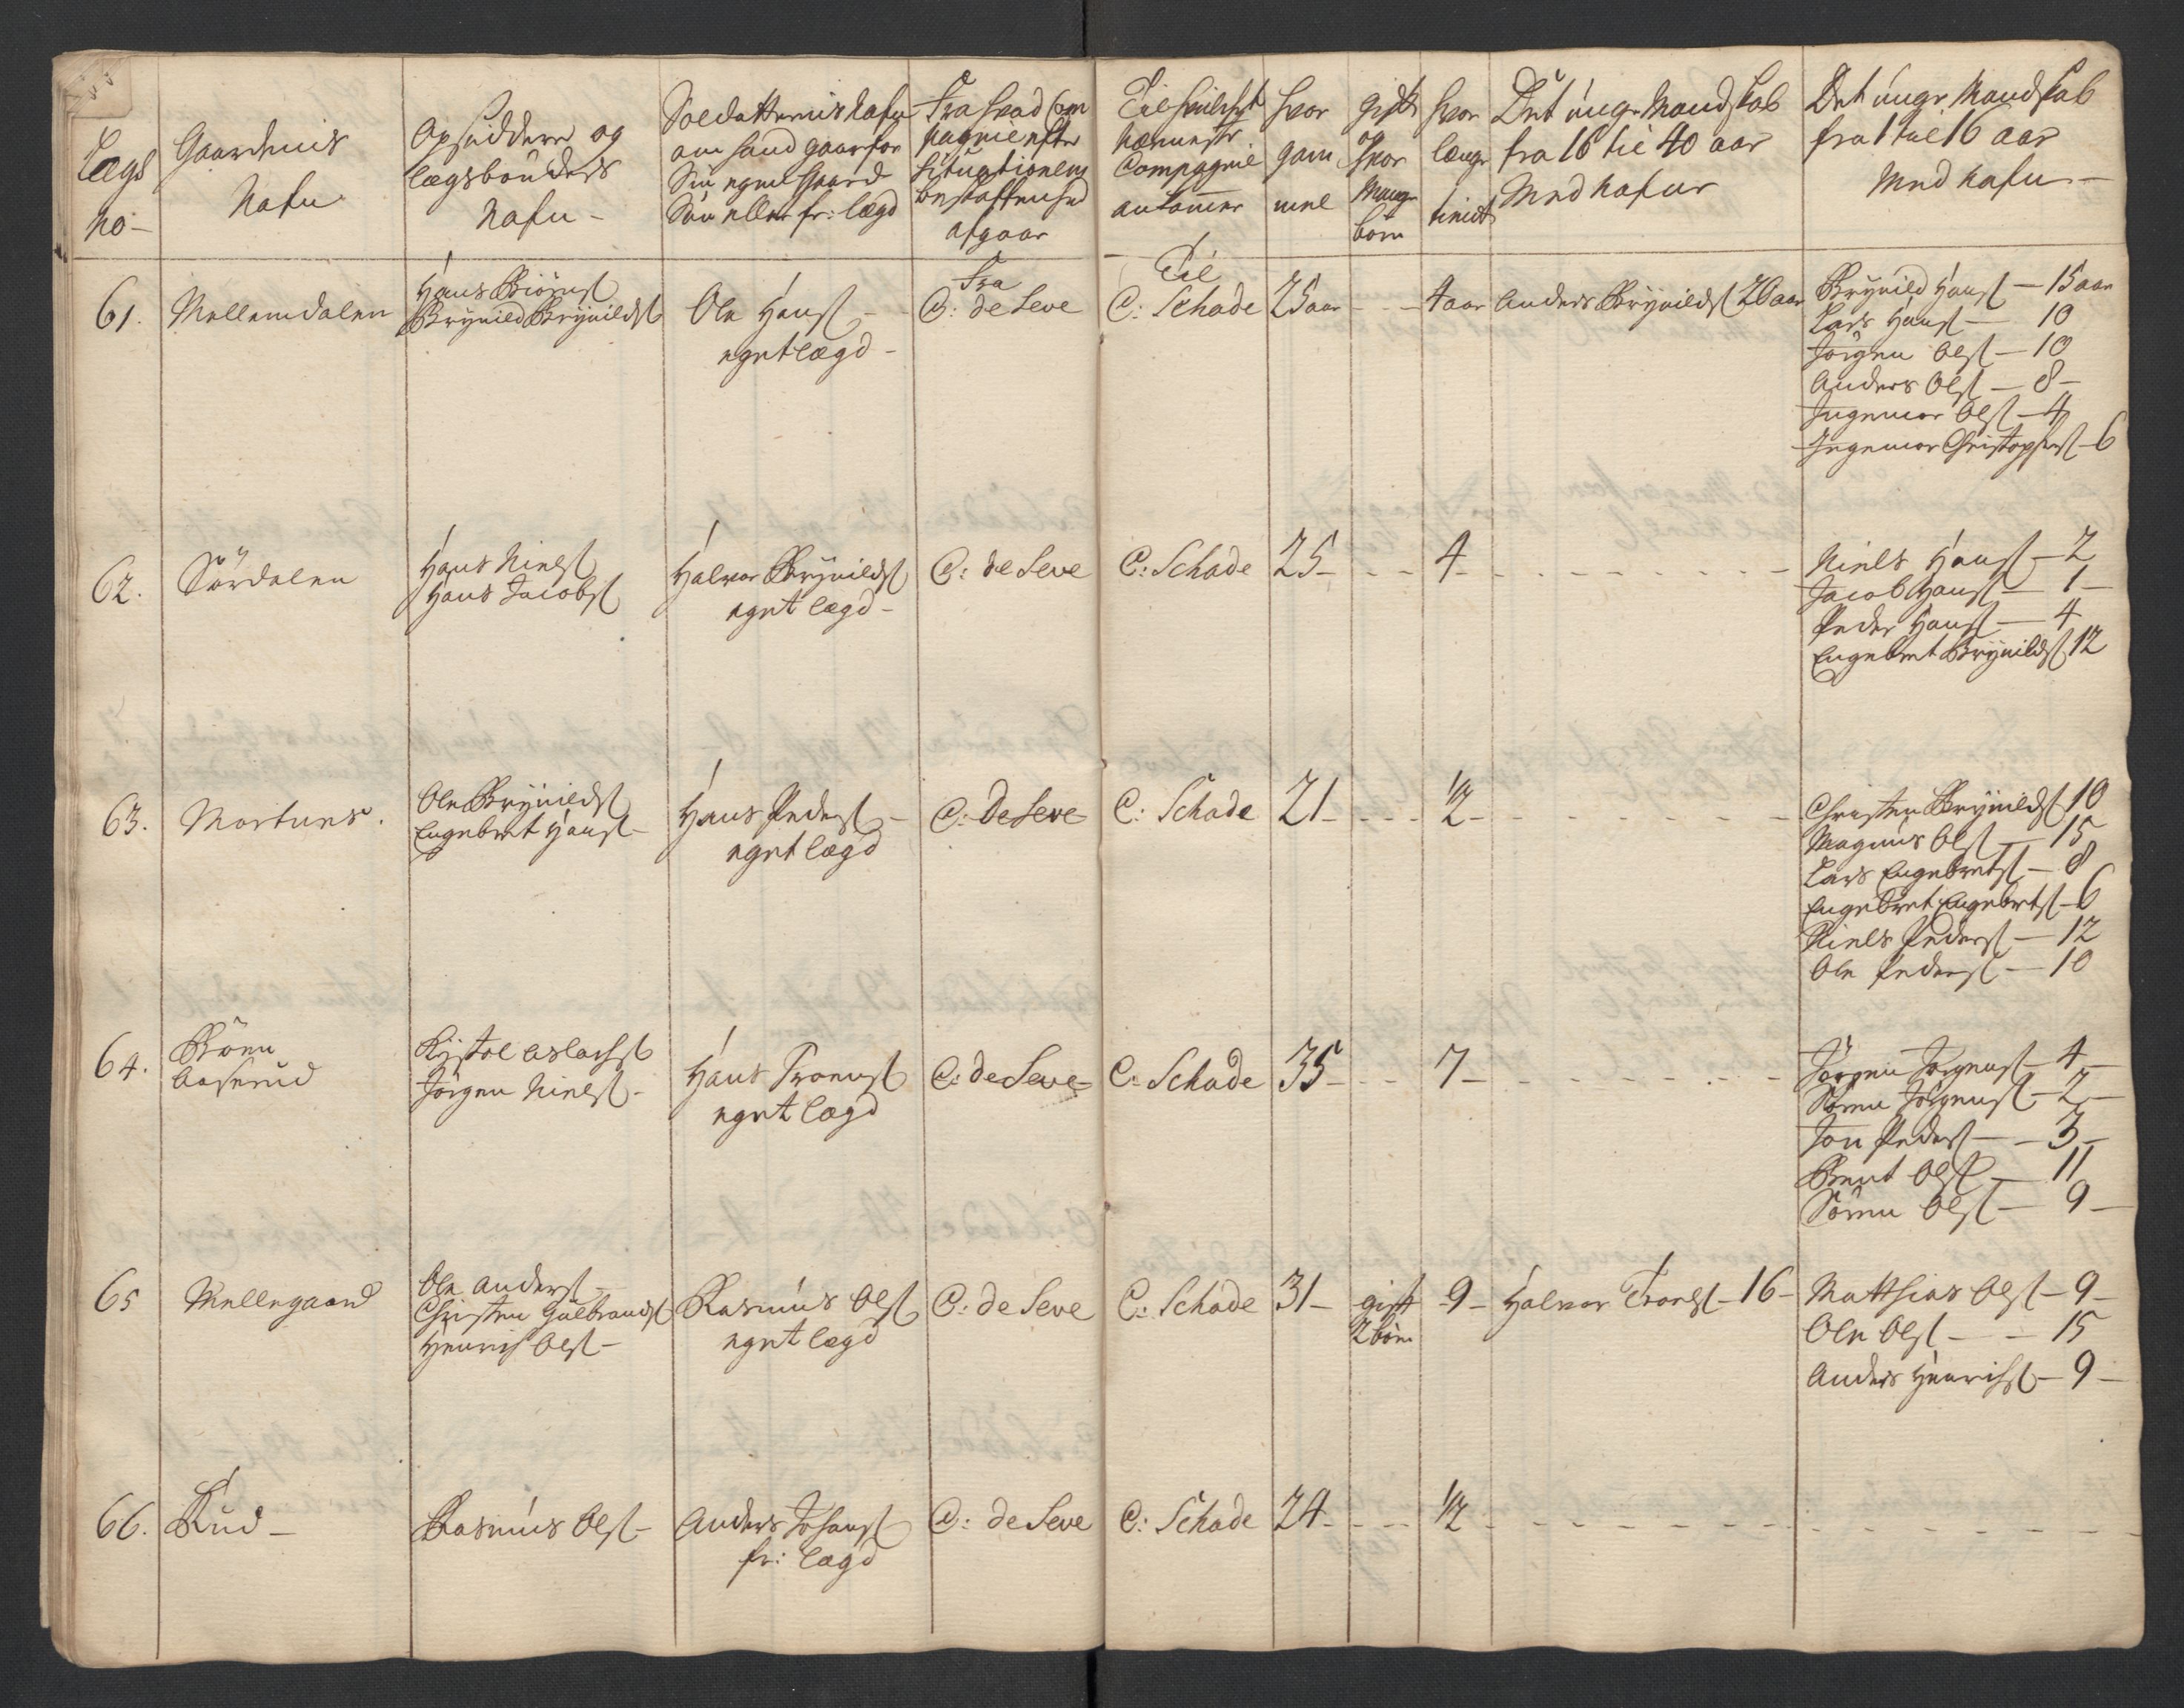 Lægs
No-
Gaardenis
Nafn
Opsiddere og
lægsbönders
Nafn-
Soldatternis Nafn
om hand gaar for
Sin egen Gaard
Söu eller fr: lægd
Fra hvad Com
pagnie efter
Situationens
beskaffenhed
afgaar
Til hvilchet
nærmeste
Compagnie
ankommer
hvor
gam
mel
gift
og
hvor
Mange
börn
hvor
længe
tient
Det unge Mandskab
fra 16 til 40 aar
Med Nafne
Det unge Mandskab
fra 1 til 16 aar
Med Nafn-
61. Mellemdalen
Hans Biörns
Brynild Brynilds
Ole Hans-
eget lægd-
Fra
C: de Seve
Til
C: Schade 25 aar - - 4 aar Anders Brynilds 20 aar
Brynild Hans - 15 aar
Lars Hans - 10
Jörgen Ols - 10
Anders Ols - 8-
Ingemor Ols - 4
Ingemor Christophers - 6
62. Sördalen
Hans Niels
Hans Jacobs
Halvor Brynilds
eget lægd-
C: de Seve
C: Schade 25- - - 4-
Niels Hans - 2
Jacob Hans - 1-
Peder Hans - 4
Engebret Brynilds 12
63. Mortens.
Ole Brynilds
Engebret Hans-
Hans Peders-
eget lægd
C: de Seve
C: Schade 21- - - 1/2-
Christen Brynilds 10
Magnus Ols - 15
Lars Engebrets - 8
Engebret Engebrets - 6
Niels Peders - 12
Ole Peders - 10
64. Bön
Aaserud
Kystol Aslachs
Jörgen Niels-
Hans Trons
eget lægd
C: de Seve-
C: Schade 35- - - 7-
Jörgen Jörgens - 4-
Sören Jörgens - 2-
Jon Peders - - 3-
Bent Ols - 11
Sören Ols - 9-
65 Mellegaard
Ole Anders-
Christen Gulbrands
Henrich Ols-
Rasmus Ols
eget lægd
C: de Seve
C: Schade 31- gift
2 börn
-9- Halvor Trons - 16-
Matthias Ols - 9-
Ole Ols - - 15
Anders Henrichs - 9-
66. Rud-
Rasmus Ols-
Anders Johans
fr: lægd
C: de Seve
C: Schade 24- - - 1/2